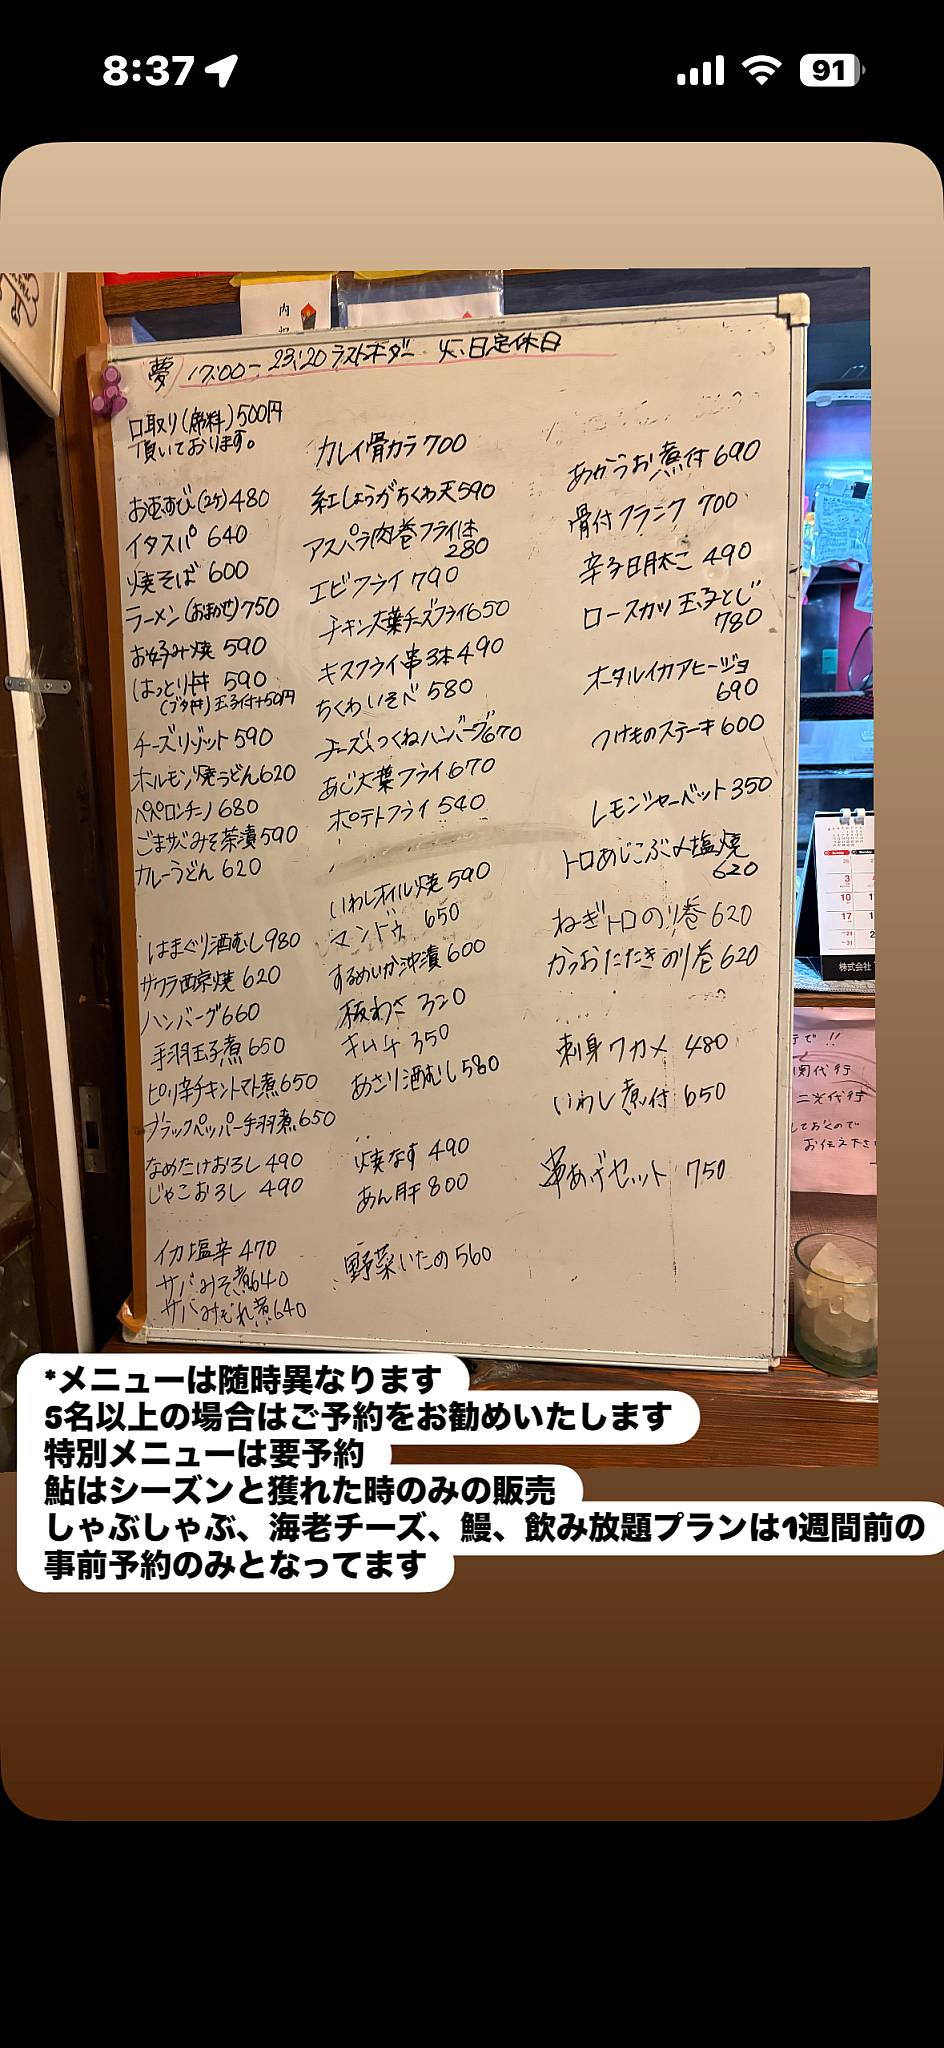 8:37
91
夢 17:00-23:20 ラストオーダー 火、日定休日
口取り(席料)500円
頂いております。
おむすび(2ケ)480
イタスパ 640
焼そば 600
ラーメン(おまかせ)750
お好み焼 590
はっとり丼 590
(ブタ丼)玉子付+50円
チーズリゾット 590
ホルモン焼うどん620
ペペロンチーノ 680
ごまサバみそ茶漬 590
カレーうどん 620
はまぐり酒むし980
サワラ西京焼 620
ハンバーグ660
手羽玉子煮 650
ピリ辛チキントマト煮650
ブラックペッパー手羽煮650
なめたけおろし490
じゃこおろし 490
イカ塩辛 470
サバみそ煮640
サバみぞれ煮640
カレイ骨カラ 700
紅しょうがちくわ天590
アスパラ肉巻フライ1本
280
エビフライ 790
チキン大葉チーズフライ650
キスフライ串3本490
ちくわいそべ 580
チーズ入つくねハンバーグ670
あじ大葉フライ 670
ポテトフライ 540
いわしオイル焼 590
マンドゥ 650
するめいか沖漬 600
板わさ 320
キムチ 350
あさり酒むし580
焼なす 490
あん肝 800
野菜いため 560
あかうお煮付 690
骨付フランク 700
辛子明太こ 490
ロースカツ玉子とじ
780
ホタルイカアヒージョ
690
つけものステーキ 600
レモンシャーベット350
トロあじこぶ〆塩焼
620
ねぎトロのり巻 620
かつおたたきのり巻 620
刺身ワカメ 480
いわし煮付 650
串あげセット 750
株式会社
二次代行
しておくので
お伝え下さい
*メニューは随時異なります
5名以上の場合はご予約をお勧めいたします
特別メニューは要予約
鮎はシーズンと獲れた時のみの販売
しゃぶしゃぶ、海老チーズ、鰻、飲み放題プランは1週間前の
事前予約のみとなってます